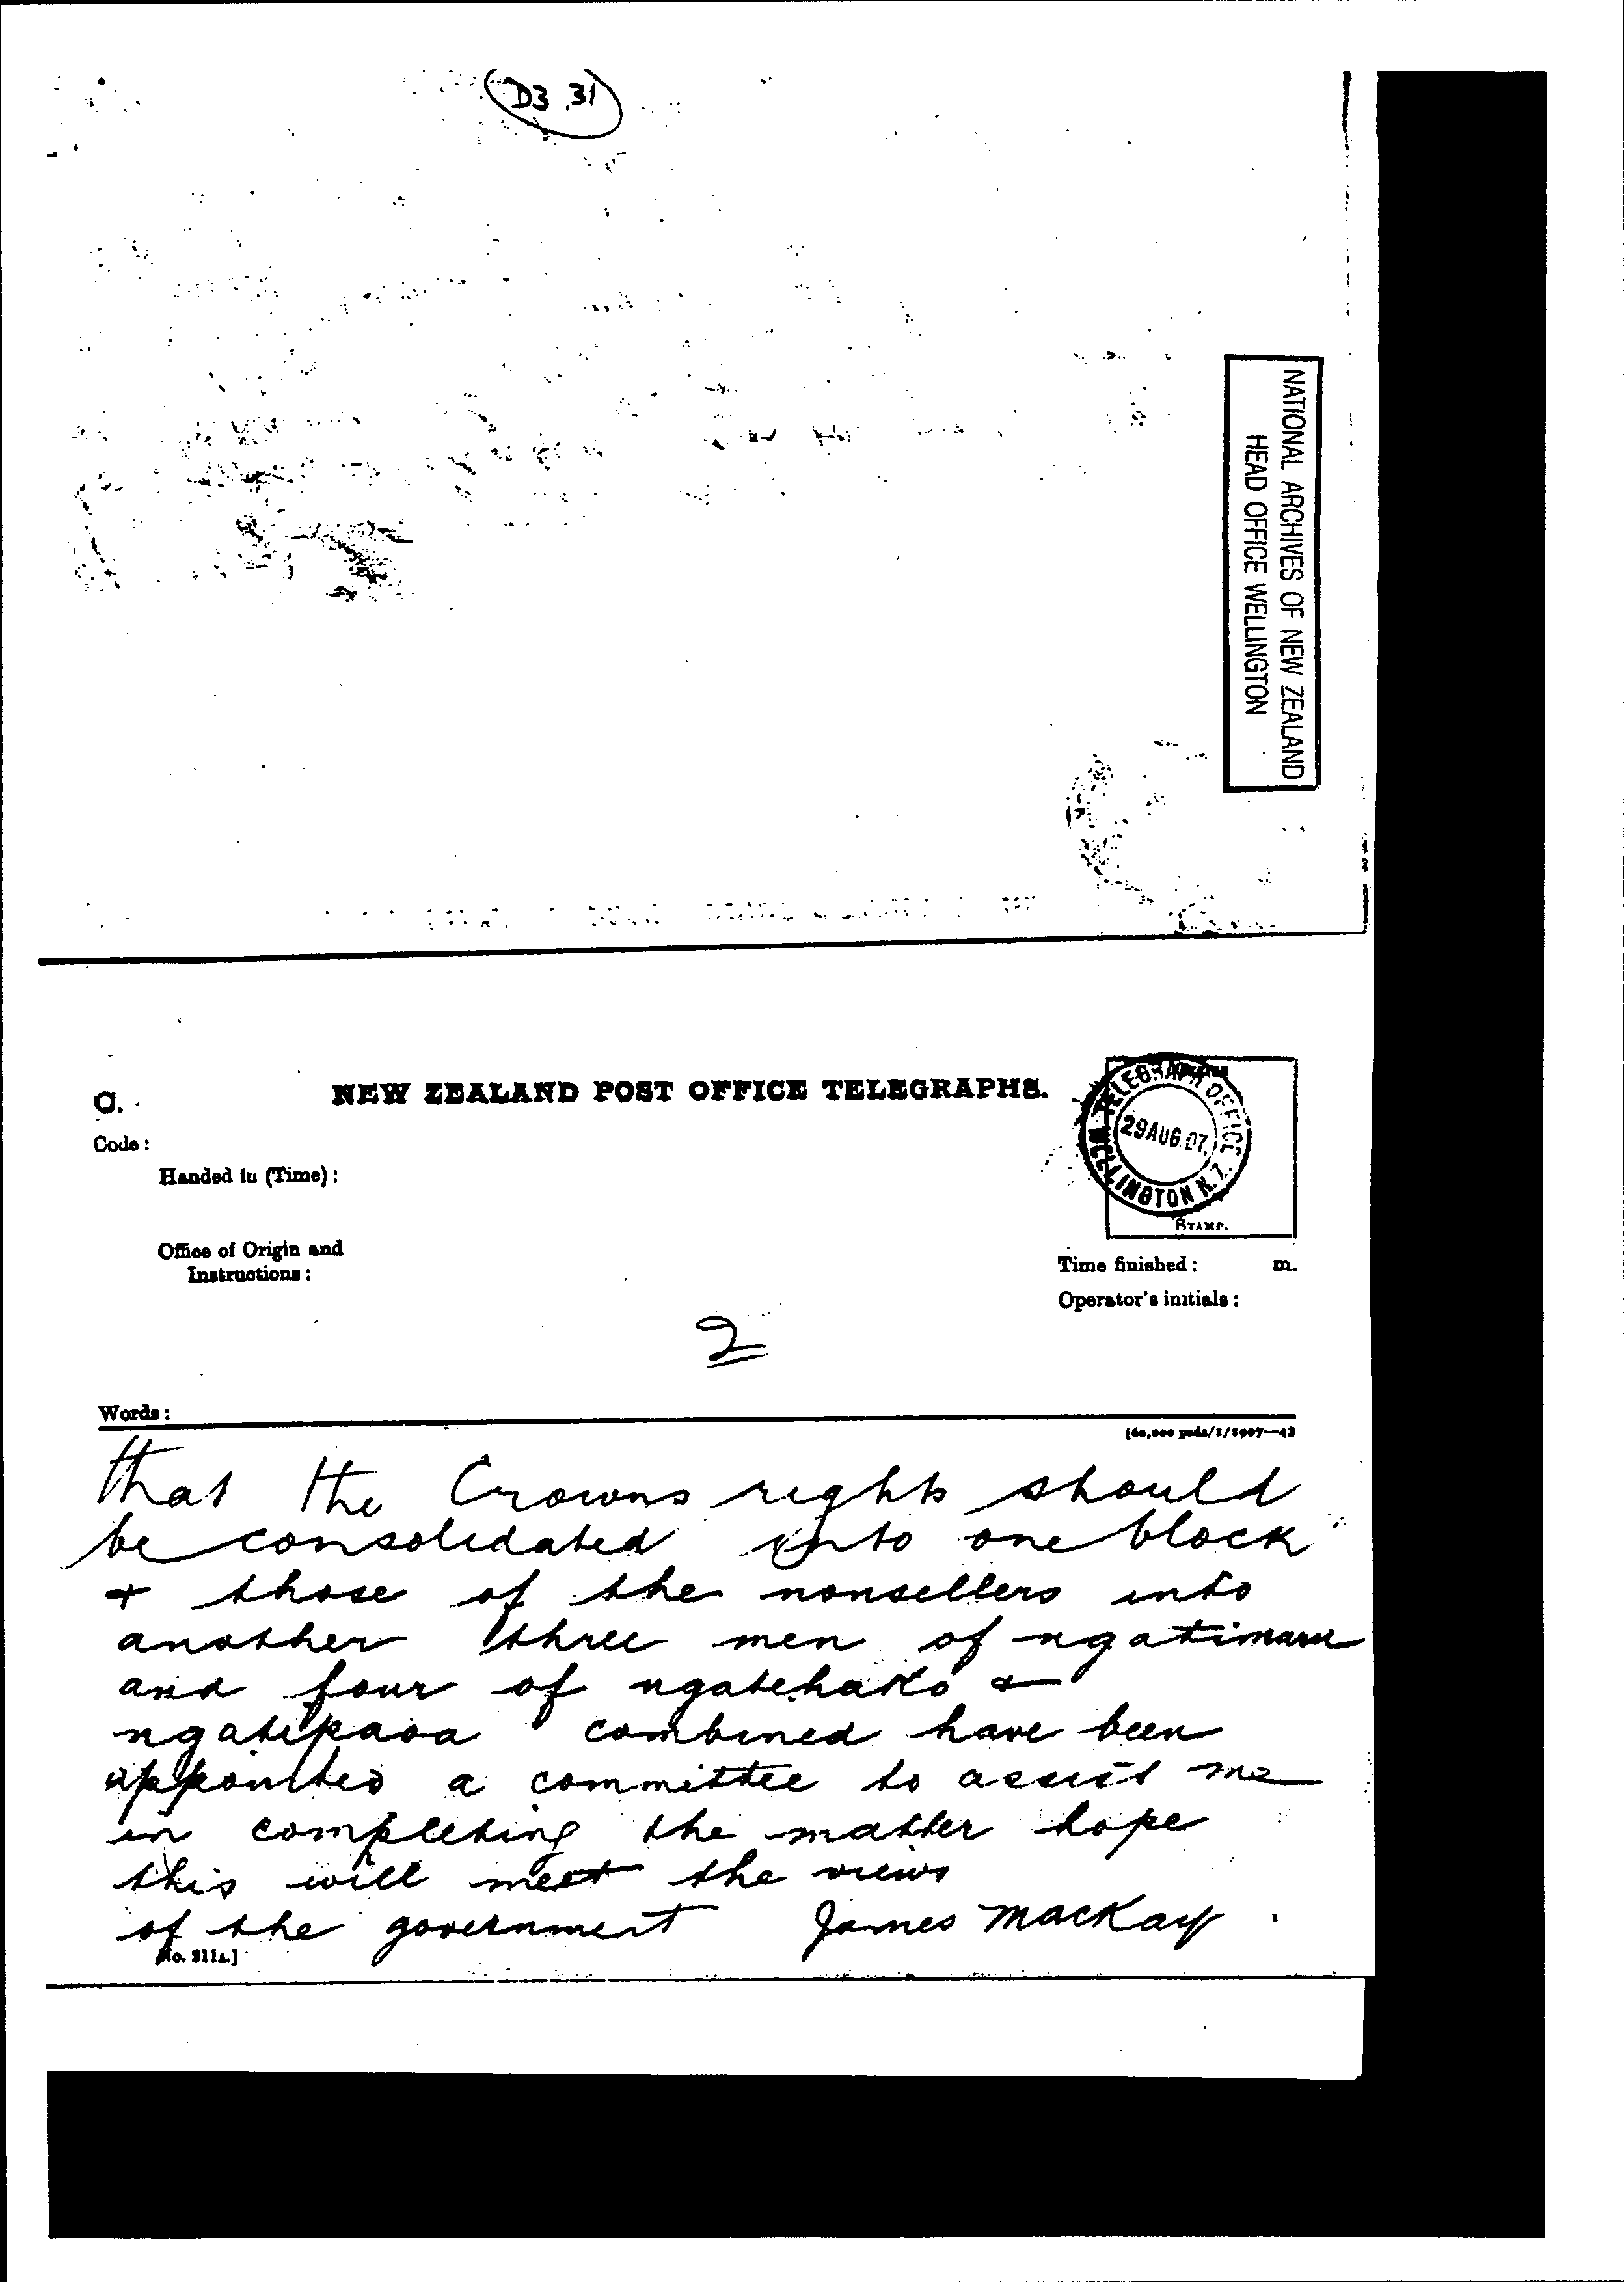 D3.31
NATIONAL ARCHIVES OF NEW ZEALAND
HEAD OFFICE WELLINGTON
C.
NEW ZEALAND POST OFFICE TELEGRAPHS.
TELEGRAPH OFFICE
29 AUG. 07.
WELLINGTON N.Z.
STAMP.
Code:
Handed in (Time):
Office of Origin and
Instructions:
Time finished: m.
Operator's initials:
2
Words:
[60,000 pads/1/1907—43
that the Crowns rights should
be consolidated into one block
& those of the nonsellers into
another three men of ngatimaru
and four of ngatehako &
ngatepaoa combined have been
appointed a committee to assist me
in completing the matter hope
this will meet the views
of the government James MacKay
No. 211A.]